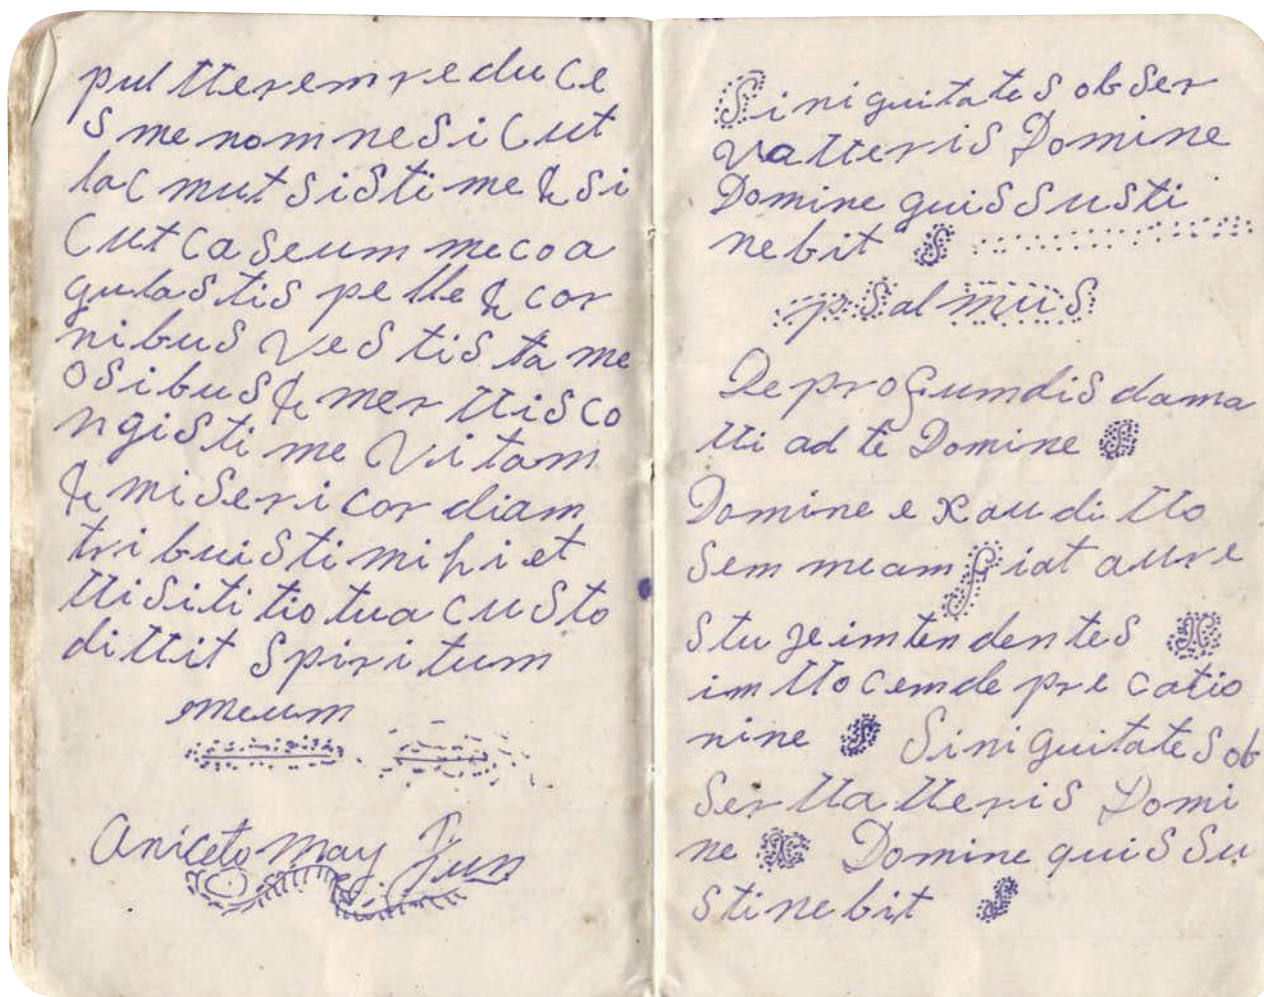 pul tterem re du ce
s me nom ne si cut
lac mut sisti me & si
cut caseum me coa
gulastis pe lle & cor
nibus vestis ta me
osibus & mer ttis co
ngisti me vitam
& miseri cor diam
tri buisti mihi et
ttisiti tio tua custo
dittit spiri tum
meum
Aniceto May P. Jun
Siniguitates obser
vatteris Domine
Domine guis susti
nebit
psalmus
De profumdis dama
tti ad te Domine
Domine exaudi tto
sem meam fiat aure
s tu ge imten den tes
im tto cem de pre catio
nine S Siniguitates ob
ser tta tteris Domi
ne Domine quis su
stine bit